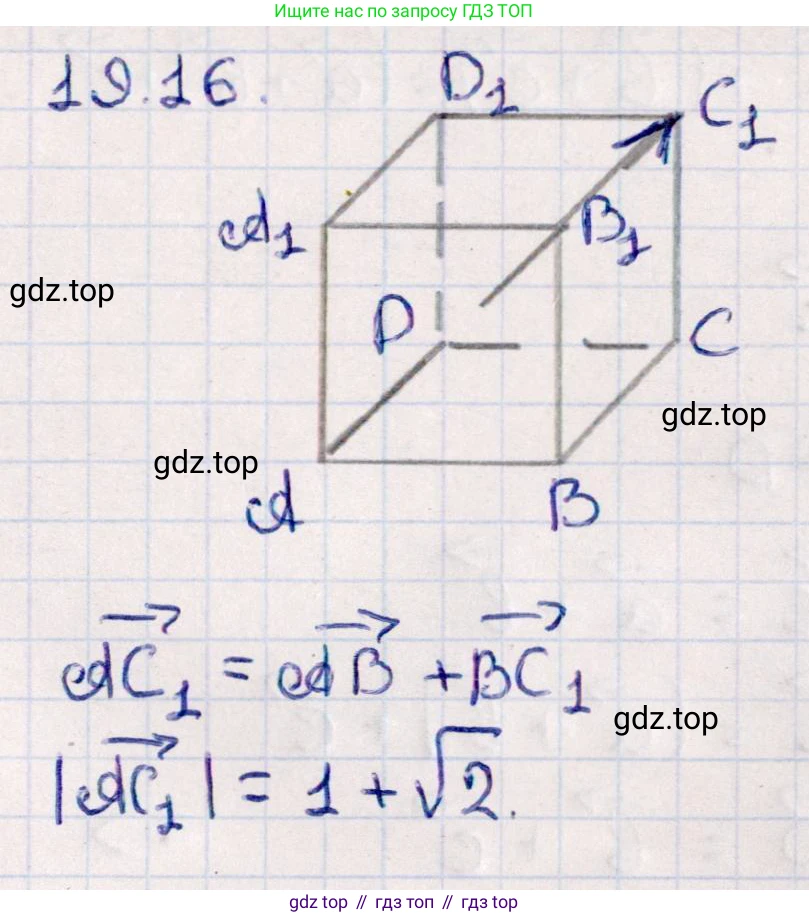 Ищите нас по запросу ГДЗ ТОП
19.16.
D₁
C₁
A₁
B₁
gdz.top
D
C
gdz.top
gdz.top
A
B
AC₁ = AB + BC₁
gdz.top
|AC₁| = 1 + √2.
gdz top // гдз топ // gdz top